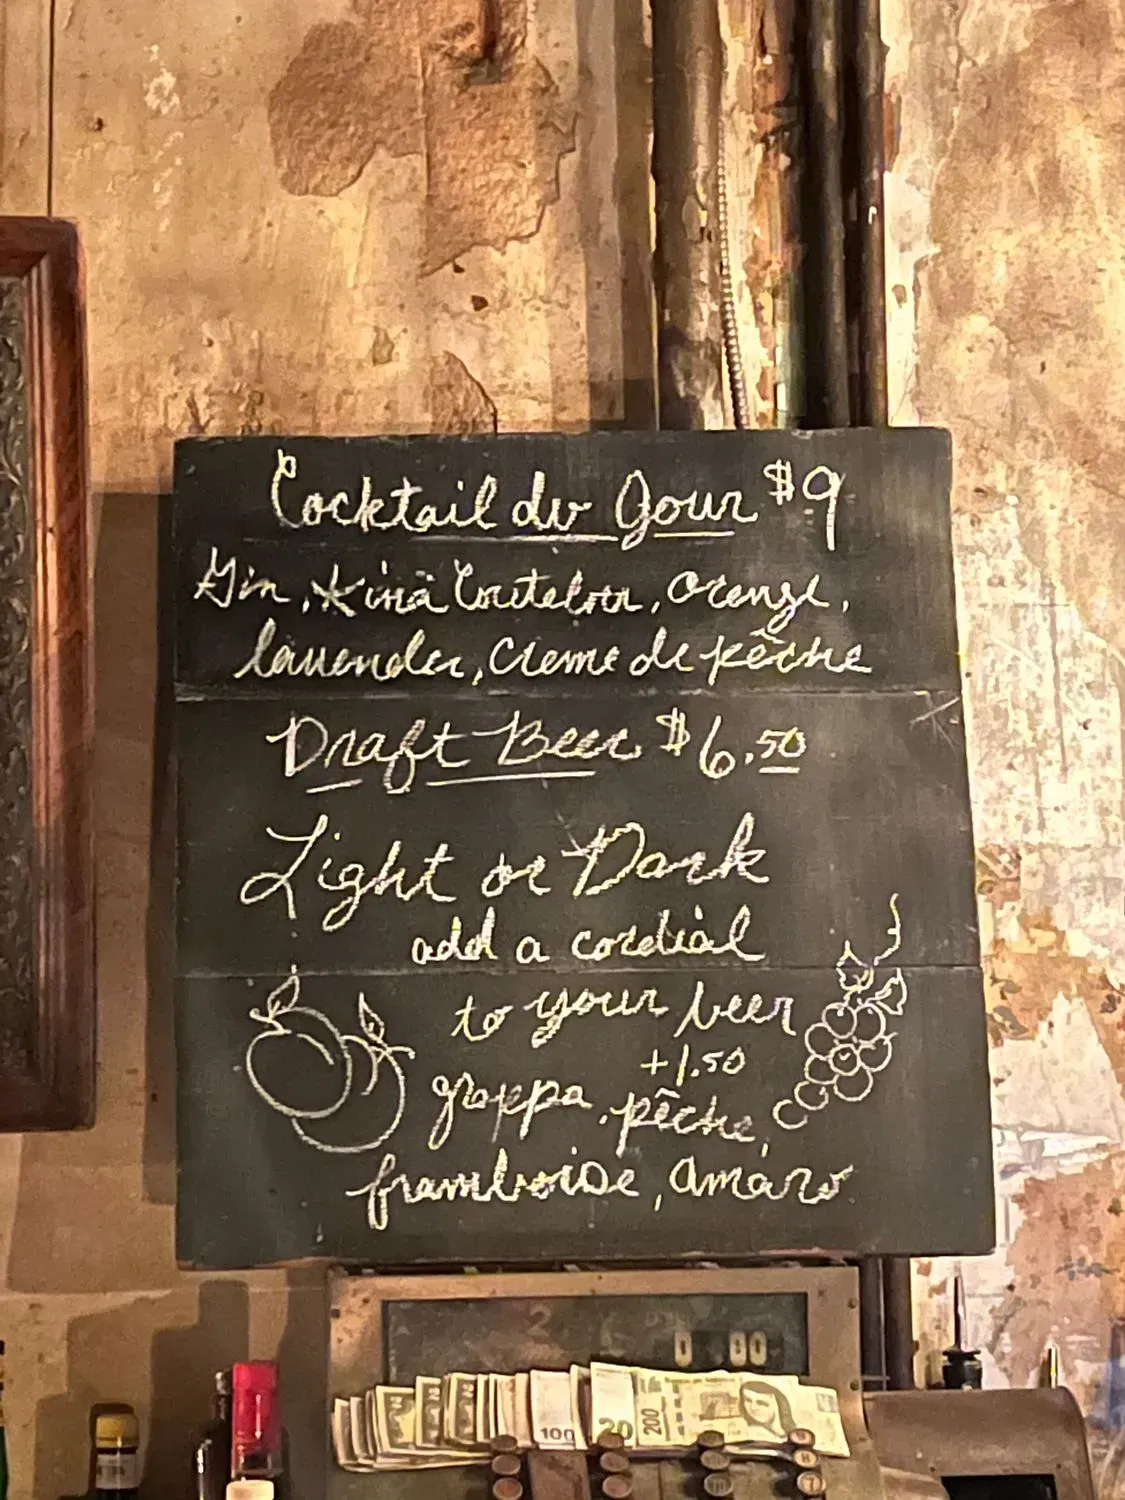 Cocktail du Jour $9
Gin, Kina, orange,
lavender, creme de pêche
Draft Beer $6.50
Light or Dark
add a cordial
to your beer
+1.50
grappa, pêche,
framboise, amaro
0 00
100 20 200